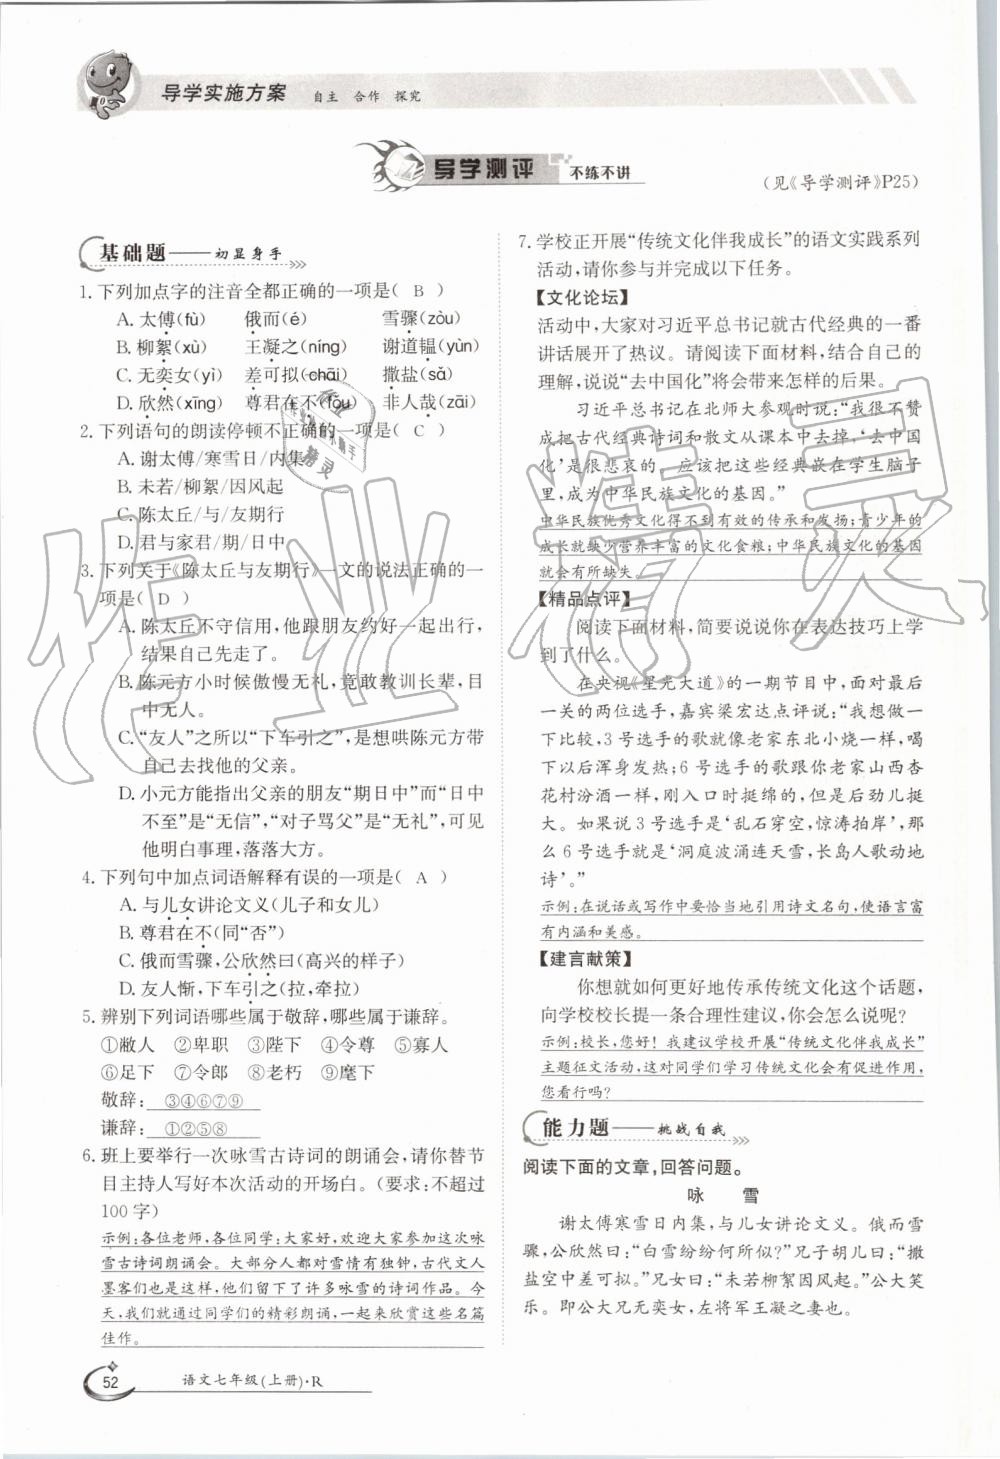 导学实施方案 自主 合作 探究
导学测评 不练不讲
(见《导学测评》P25)
基础题——初显身手
1.下列加点字的注音全都正确的一项是( B )
A.太傅(fù) 俄而(é) 雪骤(zòu)
B.柳絮(xù) 王凝之(níng) 谢道韫(yùn)
C.无奕女(yì) 差可拟(chāi) 撒盐(sǎ)
D.欣然(xīng) 尊君在不(fǒu) 非人哉(zāi)
2.下列语句的朗读停顿不正确的一项是( C )
A.谢太傅/寒雪日/内集
B.未若/柳絮/因风起
C.陈太丘/与/友期行
D.君与家君/期/日中
3.下列关于《陈太丘与友期行》一文的说法正确的一
项是( D )
A.陈太丘不守信用,他跟朋友约好一起出行,
结果自己先走了。
B.陈元方小时候傲慢无礼,竟敢教训长辈,目
中无人。
C.“友人”之所以“下车引之”,是想哄陈元方带
自己去找他的父亲。
D.小元方能指出父亲的朋友“期日中”而“日中
不至”是“无信”,“对子骂父”是“无礼”,可见
他明白事理,落落大方。
4.下列句中加点词语解释有误的一项是( A )
A.与儿女讲论文义(儿子和女儿)
B.尊君在不(同“否”)
C.俄而雪骤,公欣然曰(高兴的样子)
D.友人惭,下车引之(拉,牵拉)
5.辨别下列词语哪些属于敬辞,哪些属于谦辞。
①敝人 ②卑职 ③陛下 ④令尊 ⑤寡人
⑥足下 ⑦令郎 ⑧老朽 ⑨麾下
敬辞: ③④⑥⑦⑨
谦辞: ①②⑤⑧
6.班上要举行一次咏雪古诗词的朗诵会,请你替节
目主持人写好本次活动的开场白。(要求:不超过
100字)
示例:各位老师,各位同学:大家好,欢迎大家参加这次咏
雪古诗词朗诵会。大部分人都对雪情有独钟,古代文人
墨客们也是这样,他们留下了许多咏雪的诗词作品。今
天,我们就通过同学们的精彩朗诵,一起来欣赏这些名篇
佳作。
52 语文七年级(上册)·R
7.学校正开展“传统文化伴我成长”的语文实践系列
活动,请你参与并完成以下任务。
【文化论坛】
活动中,大家对习近平总书记就古代经典的一番
讲话展开了热议。请阅读下面材料,结合自己的
理解,说说“去中国化”将会带来怎样的后果。
习近平总书记在北师大参观时说:“我很不赞
成把古代经典诗词和散文从课本中去掉,‘去中国
化’是很悲哀的。应该把这些经典嵌在学生脑子
里,成为中华民族文化的基因。”
中华民族优秀文化得不到有效的传承和发扬;青少年的
成长就缺少营养丰富的文化食粮;中华民族文化的基因
就会有所缺失。
【精品点评】
阅读下面材料,简要说说你在表达技巧上学
到了什么。
在央视《星光大道》的一期节目中,面对最后
一关的两位选手,嘉宾梁宏达点评说:“我想做一
下比较,3号选手的歌就像老家东北小烧一样,喝
下以后浑身发热;6号选手的歌跟你老家山西杏
花村汾酒一样,刚入口时挺绵的,但是后劲儿挺
大。如果说3号选手是‘乱石穿空,惊涛拍岸’,那
么6号选手就是‘洞庭波涌连天雪,长岛人歌动地
诗’。”
示例:在说话或写作中要恰当地引用诗文名句,使语言富
有内涵和美感。
【建言献策】
你想就如何更好地传承传统文化这个话题,
向学校校长提一条合理性建议,你会怎么说呢?
示例:校长,您好!我建议学校开展“传统文化伴我成长”
主题征文活动,这对同学们学习传统文化会有促进作用,
您看行吗?
能力题——挑战自我
阅读下面的文章,回答问题。
咏 雪
谢太傅寒雪日内集,与儿女讲论文义。俄而雪
骤,公欣然曰:“白雪纷纷何所似?”兄子胡儿曰:“撒
盐空中差可拟。”兄女曰:“未若柳絮因风起。”公大笑
乐。即公大兄无奕女,左将军王凝之妻也。
作业精灵